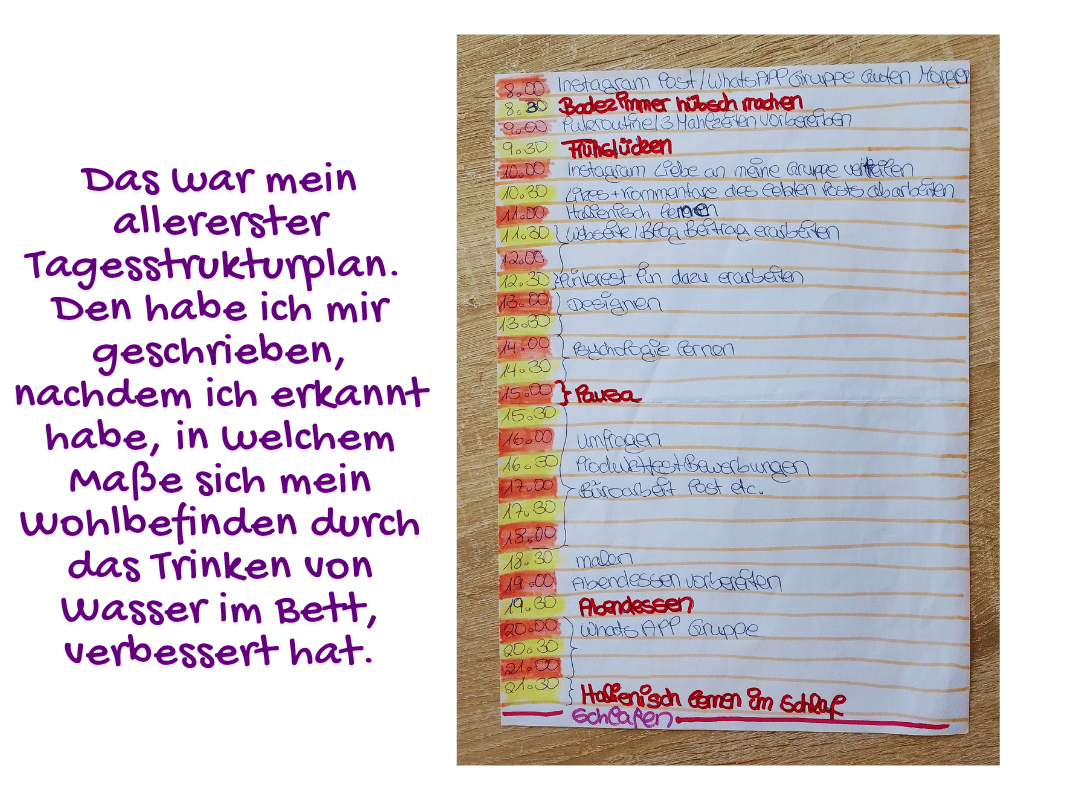 Das war mein
allererster
Tagesstrukturplan.
Den habe ich mir
geschrieben,
nachdem ich erkannt
habe, in welchem
Maße sich mein
Wohlbefinden durch
das Trinken von
Wasser im Bett,
verbessert hat.
8.00 Instagram Post/WhatsAPP Gruppe Guten Morgen
8.30 Badezimmer hübsch machen
9.00 3 Mahlzeiten vorbereiten
9.30 Frühstücken
10.00 Instagram Liebe an meine Gruppe verteilen
10.30 Likes + Kommentare des letzten Posts abarbeiten
11.00 Italienisch lernen
11.30 Webseite/Blog Beitrag erarbeiten
12.00
12.30 Pinterest Pin dazu erarbeiten
13.00 Designen
13.30
14.00 Psychologie lernen
14.30
15.00 Pausa
15.30
16.00 Umfragen
16.30 Produkttest Bewerbungen
17.00 Büroarbeit Post etc.
17.30
18.00
18.30 malen
19.00 Abendessen vorbereiten
19.30 Abendessen
20.00 WhatsAPP Gruppe
20.30
21.00
21.30 Italienisch lernen im Schlaf
Schlafen